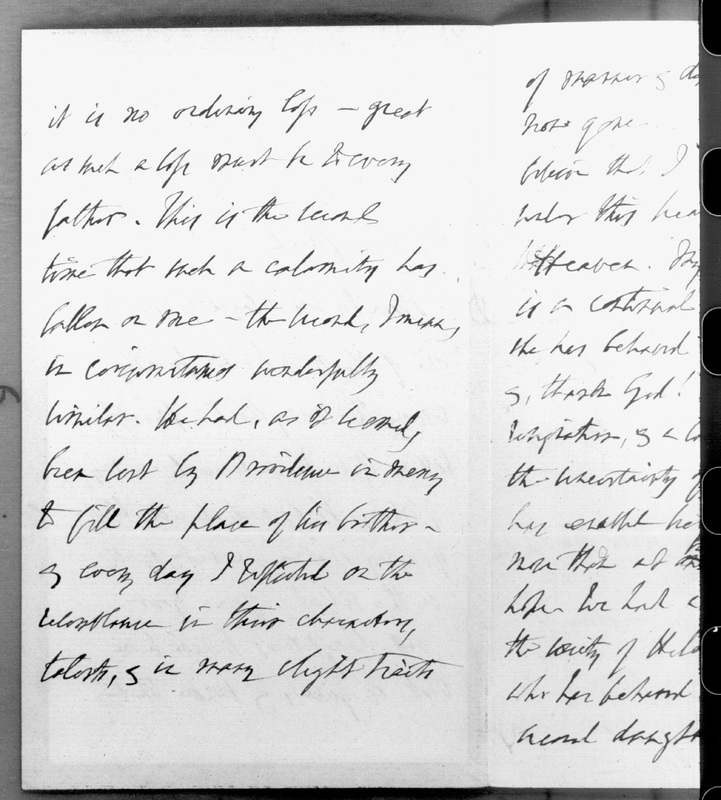 it is no ordinary loss – great
as such a loss must be to every
father. This is the second
time that such a calamity has
fallen on me – the second, I mean,
in circumstances wonderfully
similar. He had, as it seemed,
been sent by Providence in mercy
to fill the place of his brother –
& every day I reflected on the
resemblance in their characters,
talents, & in many slight traits
of manner &
not gone
believe that I
under this hea
Heaven.
is a continual
she has behaved
&, thank God!
resignation, & a
the uncertainty of
has enabled her
more than at
hope. We had a
the society of
who has behaved
second daught